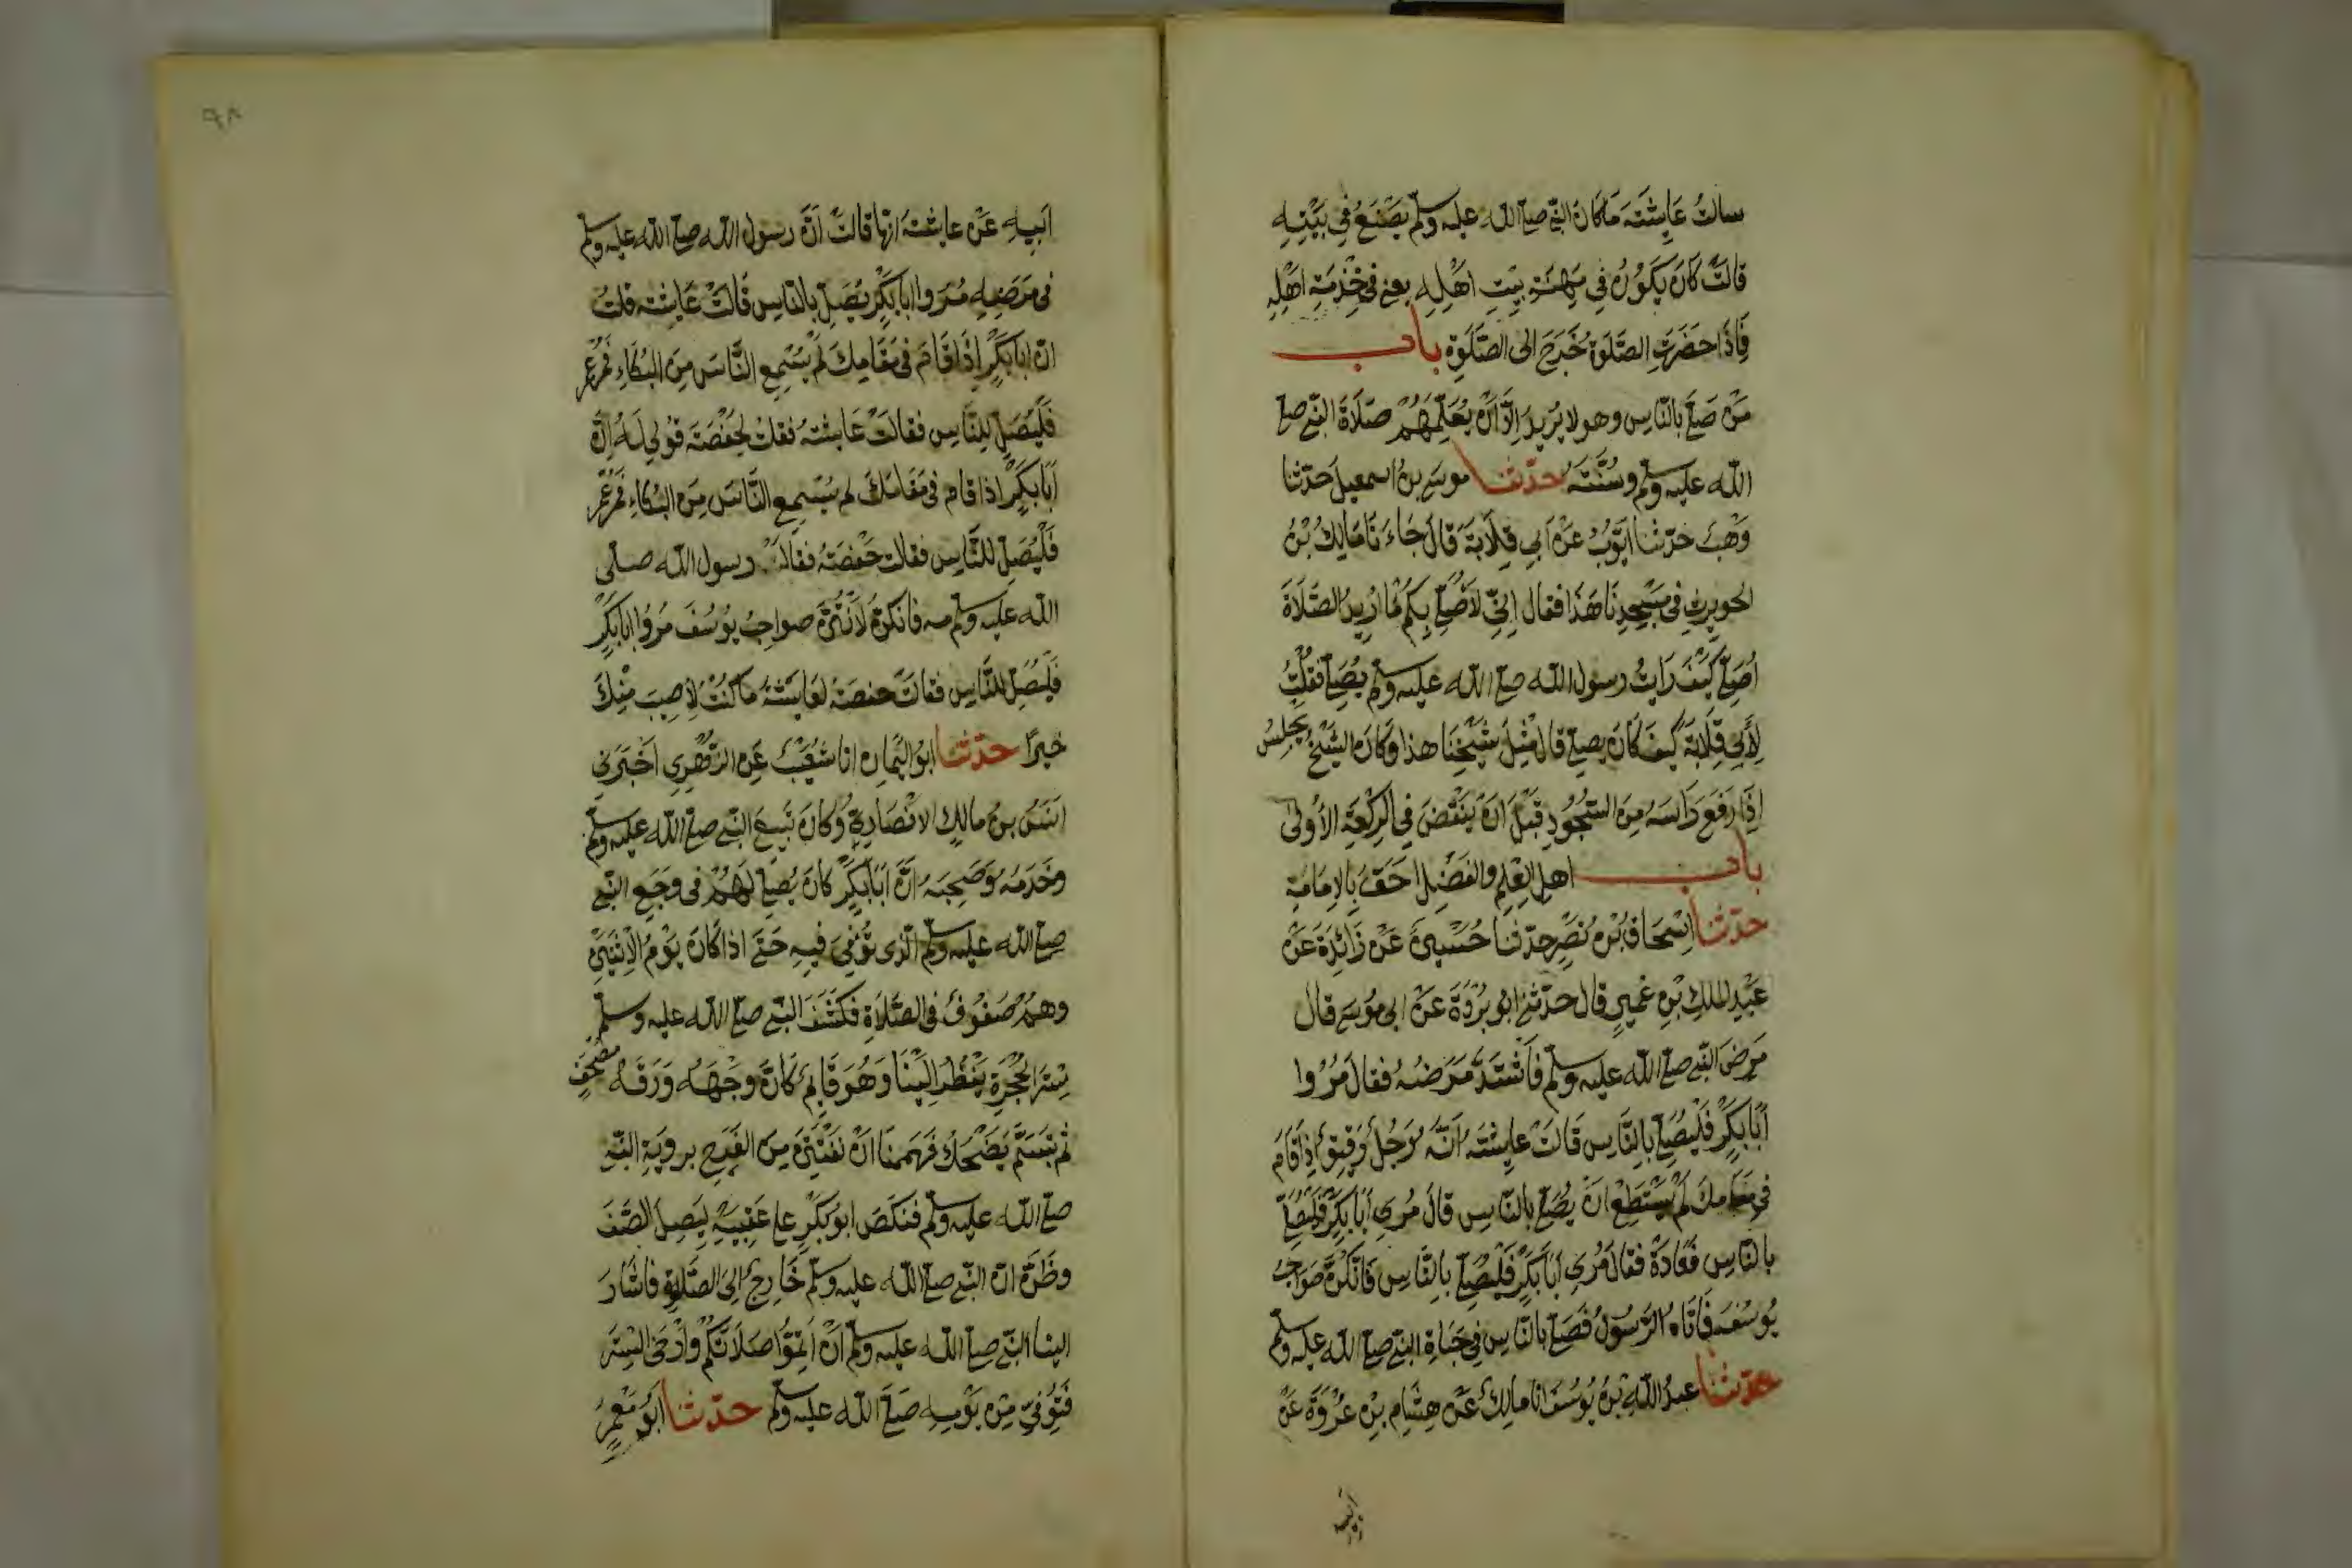 سالتُ عَايِشَتَه مَا كَانَ النَّبِي صلى الله عليه وسلم يَصْنَعُ فِي بَيْتِهِ
قالَتْ كَانَ يَكَوُنُ فِي مِهْنَةِ بَيْتِ اهْلِهِ يعني في خِدْمَةِ اهْلِهِ
فَاِذَا حضَرَتِ الصَّلَوَةُ خَرَجَ الى الصَّلَوةِ باب
مَنْ صَلَّى بالنَّاسِ وهو لا يُرِيدُ اِلَّا اَنْ يُعَلِّمَهُمْ صَلَاةَ النَّبي صلى
الله عليه وسلم وسُنَّتَهُ حدّثنا موسى بن اسمعيل حَدّثنا
وَهْبٌ حَدّثنا اَيّوُبُ عَنْ اَبِي قِلَابَةَ قَالَ جَاءَنَا مَالِكُ بْنُ
الحويرثِ في مَسْجِدِنَا هَذَا فقال اِنِّي لَاُصَلِّي بِكُمْ مَا اُرِيدُ الصَّلَاةَ
اُصَلِّي كَيْفَ رَايتُ رسول الله صلى الله عليه وسلم يُصَلِّي فَقُلْتُ
لِأَبِي قِلَابَةَ كيف كَانَ يصلي قال مِثْلَ شَيْخِنَا هذا وَكَانَ الشَّيْخُ يَجْلِسُ
اِذَا رَفَعَ رَاسَهُ مِنَ السُّجُوُدِ قَبْلَ اَنْ يَنْهَضَ فِي الرَّكْعَةِ الأُولَى
باب اهل العِلمِ والفَضْلِ احَقُّ بِالاِمَامَةِ
حدّثنا اِسْحَاقُ بْنُ نَصْرٍ حدثنا حُسَيْنٌ عَنْ زَائِدَةَ عَنْ
عَبْدِ المَلِكِ بْنِ عُمَيرٍ قال حدّثني ابو بُرْدَةَ عَنْ ابي مُوسَى قال
مَرِضَ النَّبي صلى الله عليه وسلم فَاشْتَدَّ مَرَضُهُ فقالَ مُرُوا
اَبَا بَكْرٍ فَلْيُصَلِّ بِالنَّاسِ قَالَتْ عايِشَتَه اِنَّهُ رَجُلٌ رَقِيقٌ اِذَا قَامَ
في مَقَامِكَ لَمْ يَسْتَطِعْ اَنْ يُصَلِّي بالنَّاسِ قال مُرِي اَبَا بَكْرٍ فَلْيُصَلِّ
بالنَّاسِ فَعَادَتْ فقال مُرِي اَبَا بَكْرٍ فَلْيُصَلِّ بالنَّاسِ فَانَّكُنَّ صَوَاحِبُ
يُوسُفَ فَاَتَاهُ الرَّسُولُ فَصَلَّى بالنَّاسِ في حَيَاةِ النَّبي صلى الله عليه وسلم
حدّثنا عبدُ اللهِ بْنُ يُوسُفَ انا مالِكٌ عَنْ هِشَامِ بْنِ عُرْوَةَ عَنْ
ابيه
٩٨
اَبِيهِ عَنْ عايشَتَه انها قالَتْ اَنَّ رسول الله صلى الله عليه وسلم
في مَرَضِهِ مُرَوا ابا بَكْرٍ يُصَلِّ بالنَّاسِ قَالَتْ عَايشته قلتُ
ان ابا بَكْرٍ اِذَا قَامَ في مَقَامِكَ لَمْ يُسْمِعِ النَّاسَ مِنَ البُكَاءِ فَمُرْ عُمَرَ
فَلْيُصَلِّ لِلنَّاسِ فقالَتْ عَايشتهُ فقلتُ لِحَفْصَةَ قُولِي لَهُ اِنَّ
اَبَا بَكْرٍ اذا قام في مَقَامِكَ لم يُسْمِعِ النَّاسَ مِنَ البُكَاءِ فَمُرْ عُمَرَ
فَلْيُصَلِّ للنَّاسِ فقالت حَفْصَةُ فقال رسول الله صلى
الله عليه وسلم مه فانكنّ لَاَنْتُنَّ صواحِبُ يُوسُفَ مُرُوا ابا بَكْرٍ
فَلْيُصَلِّ للنَّاسِ فقالَتْ حفصةُ لعَايشَتَهُ مَا كُنْتُ لِاُصِيبَ مِنْكِ
خيرًا حدّثنا ابو اليَمَانِ انا شُعَيْبٌ عَنِ الزُّهْرِي اخْبَرَنِي
اَنَسُ بنُ مالكٍ الانْصَارِيُّ وَكَانَ تَبِعَ النَّبي صلى الله عليه وسلم
وخَدَمَهُ وَصَحِبَهُ اَنَّ اَبَا بَكْرٍ كَانَ يُصَلِّي لَهُمْ في وَجَعِ النَّبي
صلى الله عليه وسلم الَّذي تُوُفِّيَ فيهِ حَتَّى اذا كَانَ يَوْمُ الْاِثْنَيْنِ
وهُمْ صُفُوفٌ في الصَّلَاةِ فَكَشَفَ النَّبي صلى الله عليه وسلم
سِتْرَ الحُجْرَةِ يَنْظُرُ اِلَيْنَا وَهُوَ قَايِمٌ كَاَنَّ وجْهَهُ وَرَقَةُ مُصْحَفٍ
ثم تَبَسَّمَ يَضْحَكُ فَهَمَمْنَا اَنْ نَفْتَتِنَ مِنَ الفَرَحِ بروية النَّبي
صلى الله عليه وسلم فنَكَصَ ابو بَكْرٍ على عَقِبَيْهِ لِيَصِلَ الصَّفَّ
وظَنَّ انّ النَّبي صلى الله عليه وسلم خَارِجٌ اِلَى الصَّلَوةِ فاشَارَ
الينا النَّبي صلى الله عليه وسلم اَنْ اَتِمُّوا صَلَاتَكُمْ وَاَرْخَى السِّتْرَ
فَتُوُفِّيَ مِنْ يَوْمِهِ صَلَّى الله عليه وسلم حدّثنا اَبُو مَعْمَرٍ